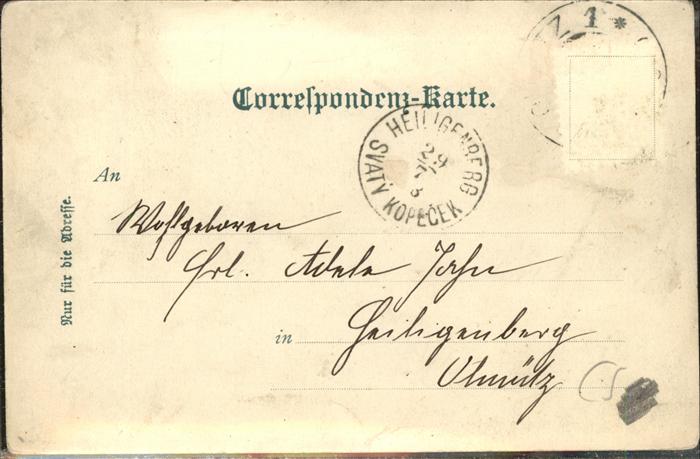 Correspondenz-Karte.
HEILIGENBERG
29
SVATÝ KOPEČEK
An
Wohlgeboren
Frl. Adele Jahn
in Heiligenberg
Olmütz
Nur für die Adresse.
Z 1 *
CS